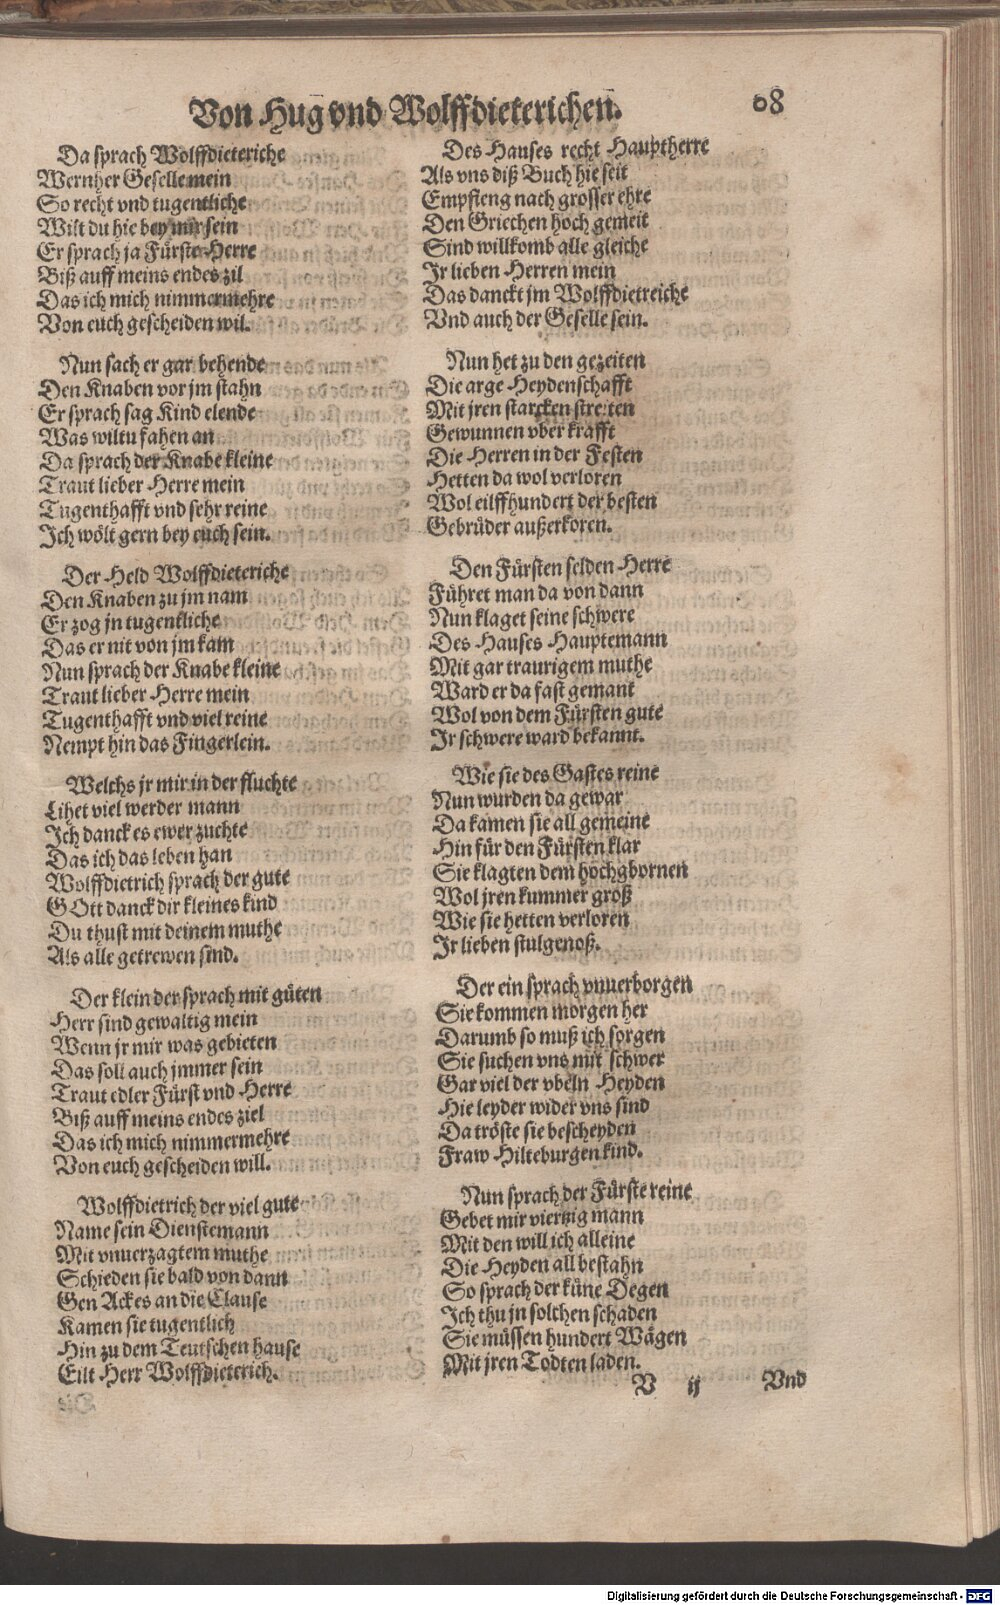 Von Hug vnd Wolffdieterichen. 08
Da sprach Wolffdieteriche
Wernher Geselle mein
So recht vnd tugentliche
Wilt du hie bey mir sein
Er sprach ja Fürste Herre
Biß auff meins endes zil
Das ich mich nimmermehre
Von euch gescheiden wil.
Nun sach er gar behende
Den Knaben vor jm stahn
Er sprach sag Kind elende
Was wiltu fahen an
Da sprach der Knabe kleine
Traut lieber Herre mein
Tugenthafft vnd sehr reine
Ich wölt gern bey euch sein.
Der Held Wolffdieteriche
Den Knaben zu jm nam
Er zog jn tugentliche
Das er nit von jm kam
Nun sprach der Knabe kleine
Traut lieber Herre mein
Tugenthafft vnd viel reine
Nempt hin das Fingerlein.
Welchs jr mir in der fluchte
Lihet viel werder mann
Ich danck es ewer zuchte
Das ich das leben han
Wolffdietrich sprach der gute
GOtt danck dir kleines kind
Du thust mit deinem muthe
Als alle getrewen sind.
Der klein der sprach mit güten
Herr sind gewaltig mein
Wenn jr mir was gebieten
Das soll auch jmmer sein
Traut edler Fürst vnd Herre
Biß auff meins endes ziel
Das ich mich nimmermehre
Von euch gescheiden will.
Wolffdietrich der viel gute
Name sein Dienstemann
Mit vnuerzagtem muthe
Schieden sie bald von dann
Gen Ackes an die Clause
Kamen sie tugentlich
Hin zu dem Teutschen hause
Eilt Herr Wolffdieterich.
Des Hauses recht Hauptherre
Als vns diß Buch hie seit
Empfieng nach grosser ehre
Den Griechen hoch gemeit
Sind willkomb alle gleiche
Ir lieben Herren mein
Das danckt jm Wolffdietreiche
Vnd auch der Geselle sein.
Nun het zu den gezeiten
Die arge Heydenschafft
Mit jren starcken streiten
Gewunnen vber krafft
Die Herren in der Festen
Hetten da wol verloren
Wol eilffhundert der besten
Gebrüder außerkoren.
Den Fürsten selden Herre
Führet man da von dann
Nun klaget seine schwere
Des Hauses Hauptemann
Mit gar traurigem muthe
Ward er da fast gemant
Wol von dem Fürsten gute
Ir schwere ward bekannt.
Wie sie des Gastes reine
Nun wurden da gewar
Da kamen sie all gemeine
Hin für den Fürsten klar
Sie klagten dem hochgbornen
Wol jren kummer groß
Wie sie hetten verloren
Ir lieben stulgenoß.
Der ein sprach vnuerborgen
Sie kommen morgen her
Darumb so muß ich sorgen
Sie suchen vns mit schwer
Gar viel der vbeln Heyden
Hie leyder wider vns sind
Da tröste sie bescheyden
Fraw Hilteburgen kind.
Nun sprach der Fürste reine
Gebet mir viertzig mann
Mit den will ich alleine
Die Heyden all bestahn
So sprach der küne Degen
Ich thu jn solchen schaden
Sie müssen hundert Wägen
Mit jren Todten laden.
V ij Vnd
Digitalisierung gefördert durch die Deutsche Forschungsgemeinschaft - DFG